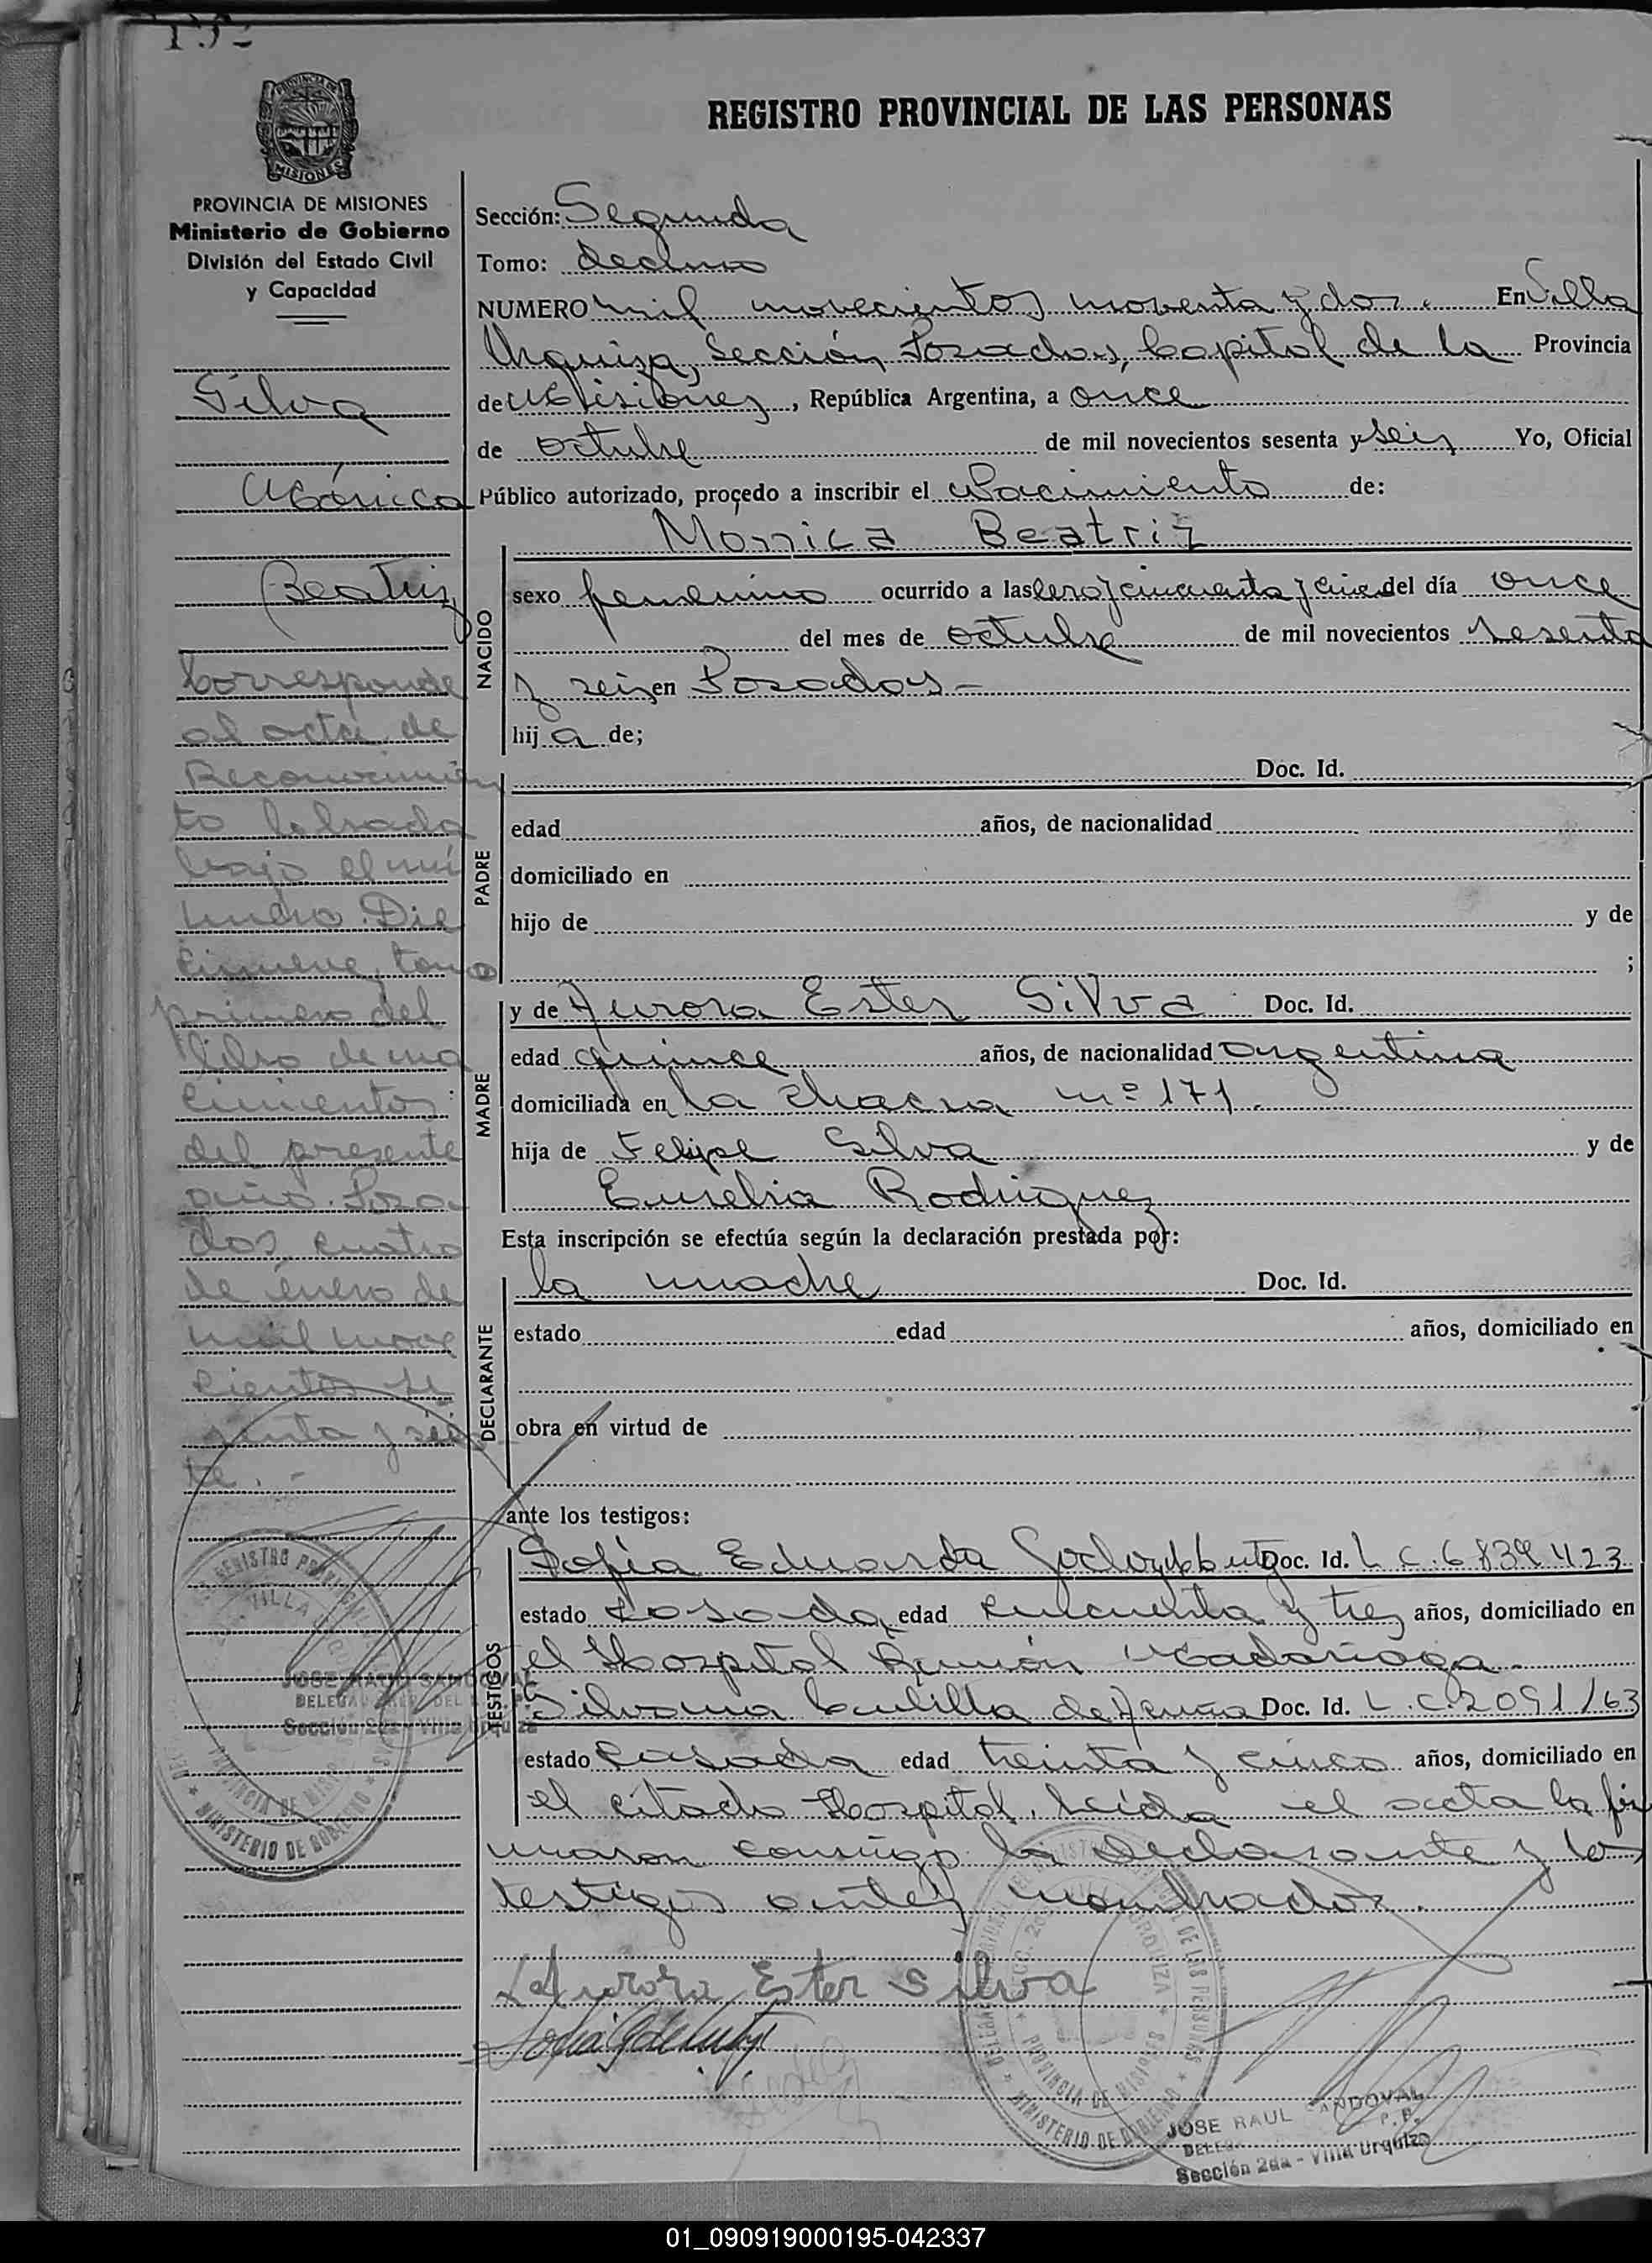 PROVINCIA DE
MISIONES
PROVINCIA DE MISIONES
Ministerio de Gobierno
División del Estado Civil
y Capacidad
REGISTRO PROVINCIAL DE LAS PERSONAS
Sección: Segunda
Tomo: decimo
NUMERO mil novecientos noventa y dos. En Villa
Urquiza, Sección Posadas, Capital de la Provincia
de Misiones, República Argentina, a once
de octubre de mil novecientos sesenta y seis Yo, Oficial
Público autorizado, proçedo a inscribir el Nacimiento de:
Silva
Mónica
Beatriz
Corresponde
al acta de
Reconocimien
to labrada
bajo el nú
mero Die
cinueve, tomo
primero del
libro de na
cimientos
del presente
año. Posa
das, cuatro
de enero de
mil nove
cientos se
senta y sie
te.-
NACIDO
Mónica Beatriz
sexo femenino ocurrido a las cero y cincuenta y cinco del día once
del mes de octubre de mil novecientos sesenta
y seis en Posadas-
hij a de;
PADRE
Doc. Id.
edad años, de nacionalidad
domiciliado en
hijo de y de
;
MADRE
y de Aurora Ester Silva Doc. Id.
edad quince años, de nacionalidad argentina
domiciliada en la chacra nº 171.
hija de Felipe Silva y de
Eusebia Rodriguez
Esta inscripción se efectúa según la declaración prestada por:
DECLARANTE
la madre Doc. Id.
estado edad años, domiciliado en
obra en virtud de
ante los testigos:
TESTIGOS
Sofia Eduarda Doc. Id. L.C. 6.839.423
estado casada edad cincuenta y tres años, domiciliado en
el Hospital Ramón Madariaga.
Silvana de Doc. Id. L.C. 2091163
estado casada edad treinta y cinco años, domiciliado en
el citado Hospital. Leída el acta la fir
maron conmigo la declarante y los
testigos antes nombrados.
Aurora Ester Silva
JOSE RAUL SANDOVAL
Sección 2da - Villa Urquiza
MINISTERIO DE GOBIERNO
PROVINCIA DE MISIONES
JOSE RAUL SANDOVAL
Sección 2da - Villa Urquiza
01_090919000195-042337